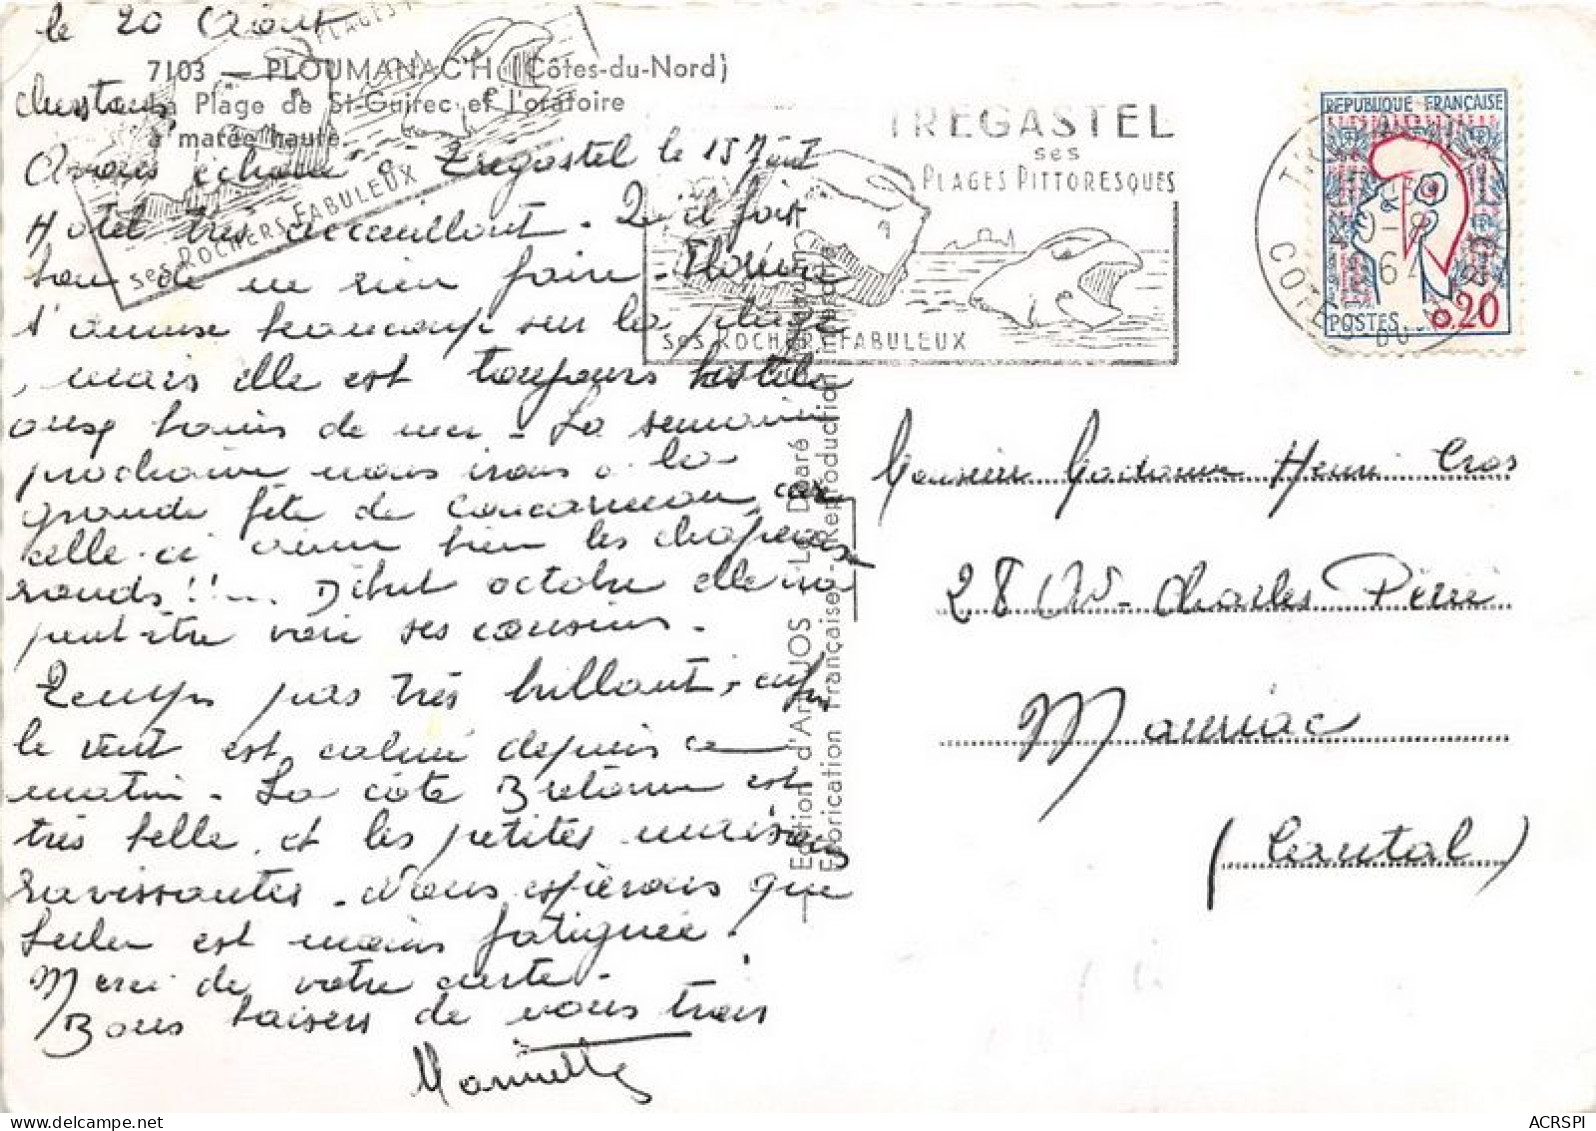 le 20 Août
7103 — PLOUMANAC'H (Côtes-du-Nord)
La Plage de St-Guirec et l'oratoire
à marée haute.
PLAGES
ses ROCHERS FABULEUX
Avons échoué à Trégastel le 15 Août
Hotel très accueillant. Qu'il fait
bon de ne rien faire.
s'amuse beaucoup sur la plage
, mais elle est toujours hostile
aux bains de mer. La semaine
prochaine nous irons à la
grande fête de Concarneau, car
celle-ci aime bien les chapeaux
ronds !! ... Début octobre elle ira
peut-être voir ses cousins.
Temps pas très brillant, enfin
le vent est calmé depuis ce
matin. La côte Bretonne est
très belle et les petites maisons
ravissantes. Nous espérons que
est moins fatiguée.
Merci de votre carte.
Bons baisers de nous trois
TREGASTEL
ses
PLAGES PITTORESQUES
ses ROCHERS FABULEUX
COTES DU
64
REPUBLIQUE FRANÇAISE
POSTES 0,20
Edition d'Art JOS Le Doaré
Fabrication Française - Reproduction interdite
Monsieur Madame Henri Cros
28 Av. Charles Périé
Mauriac
(Cantal)
ACRSPI